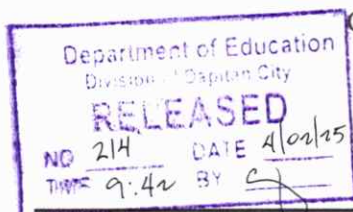 Department of Education
Division of Dapitan City
RELEASED
NO 214 DATE 4/02/25
TIME 9:42 BY